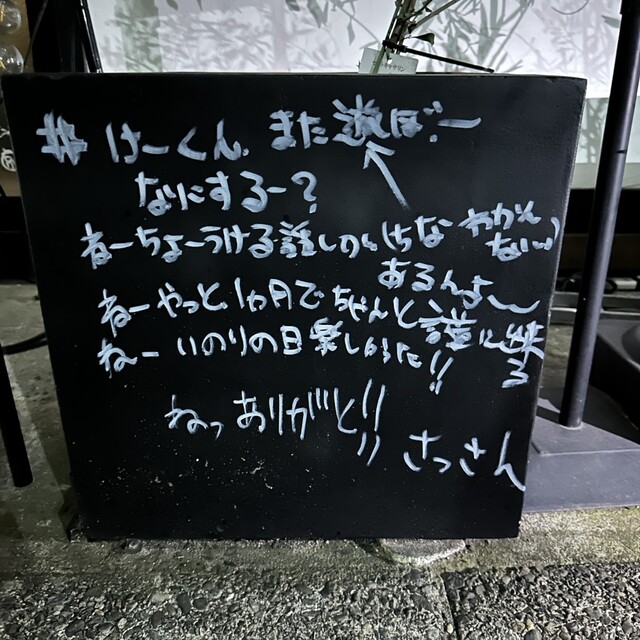 # けーくん。また遊ぼー
なにするー?
ねーちょーうける話しのん(ちな わかんない…)
あるんよ〜
ねーやっと1ヵ月でちゃんと話に出来る
ねー いのりの日楽しかった!!
ねっ ありがと!!
さっさん